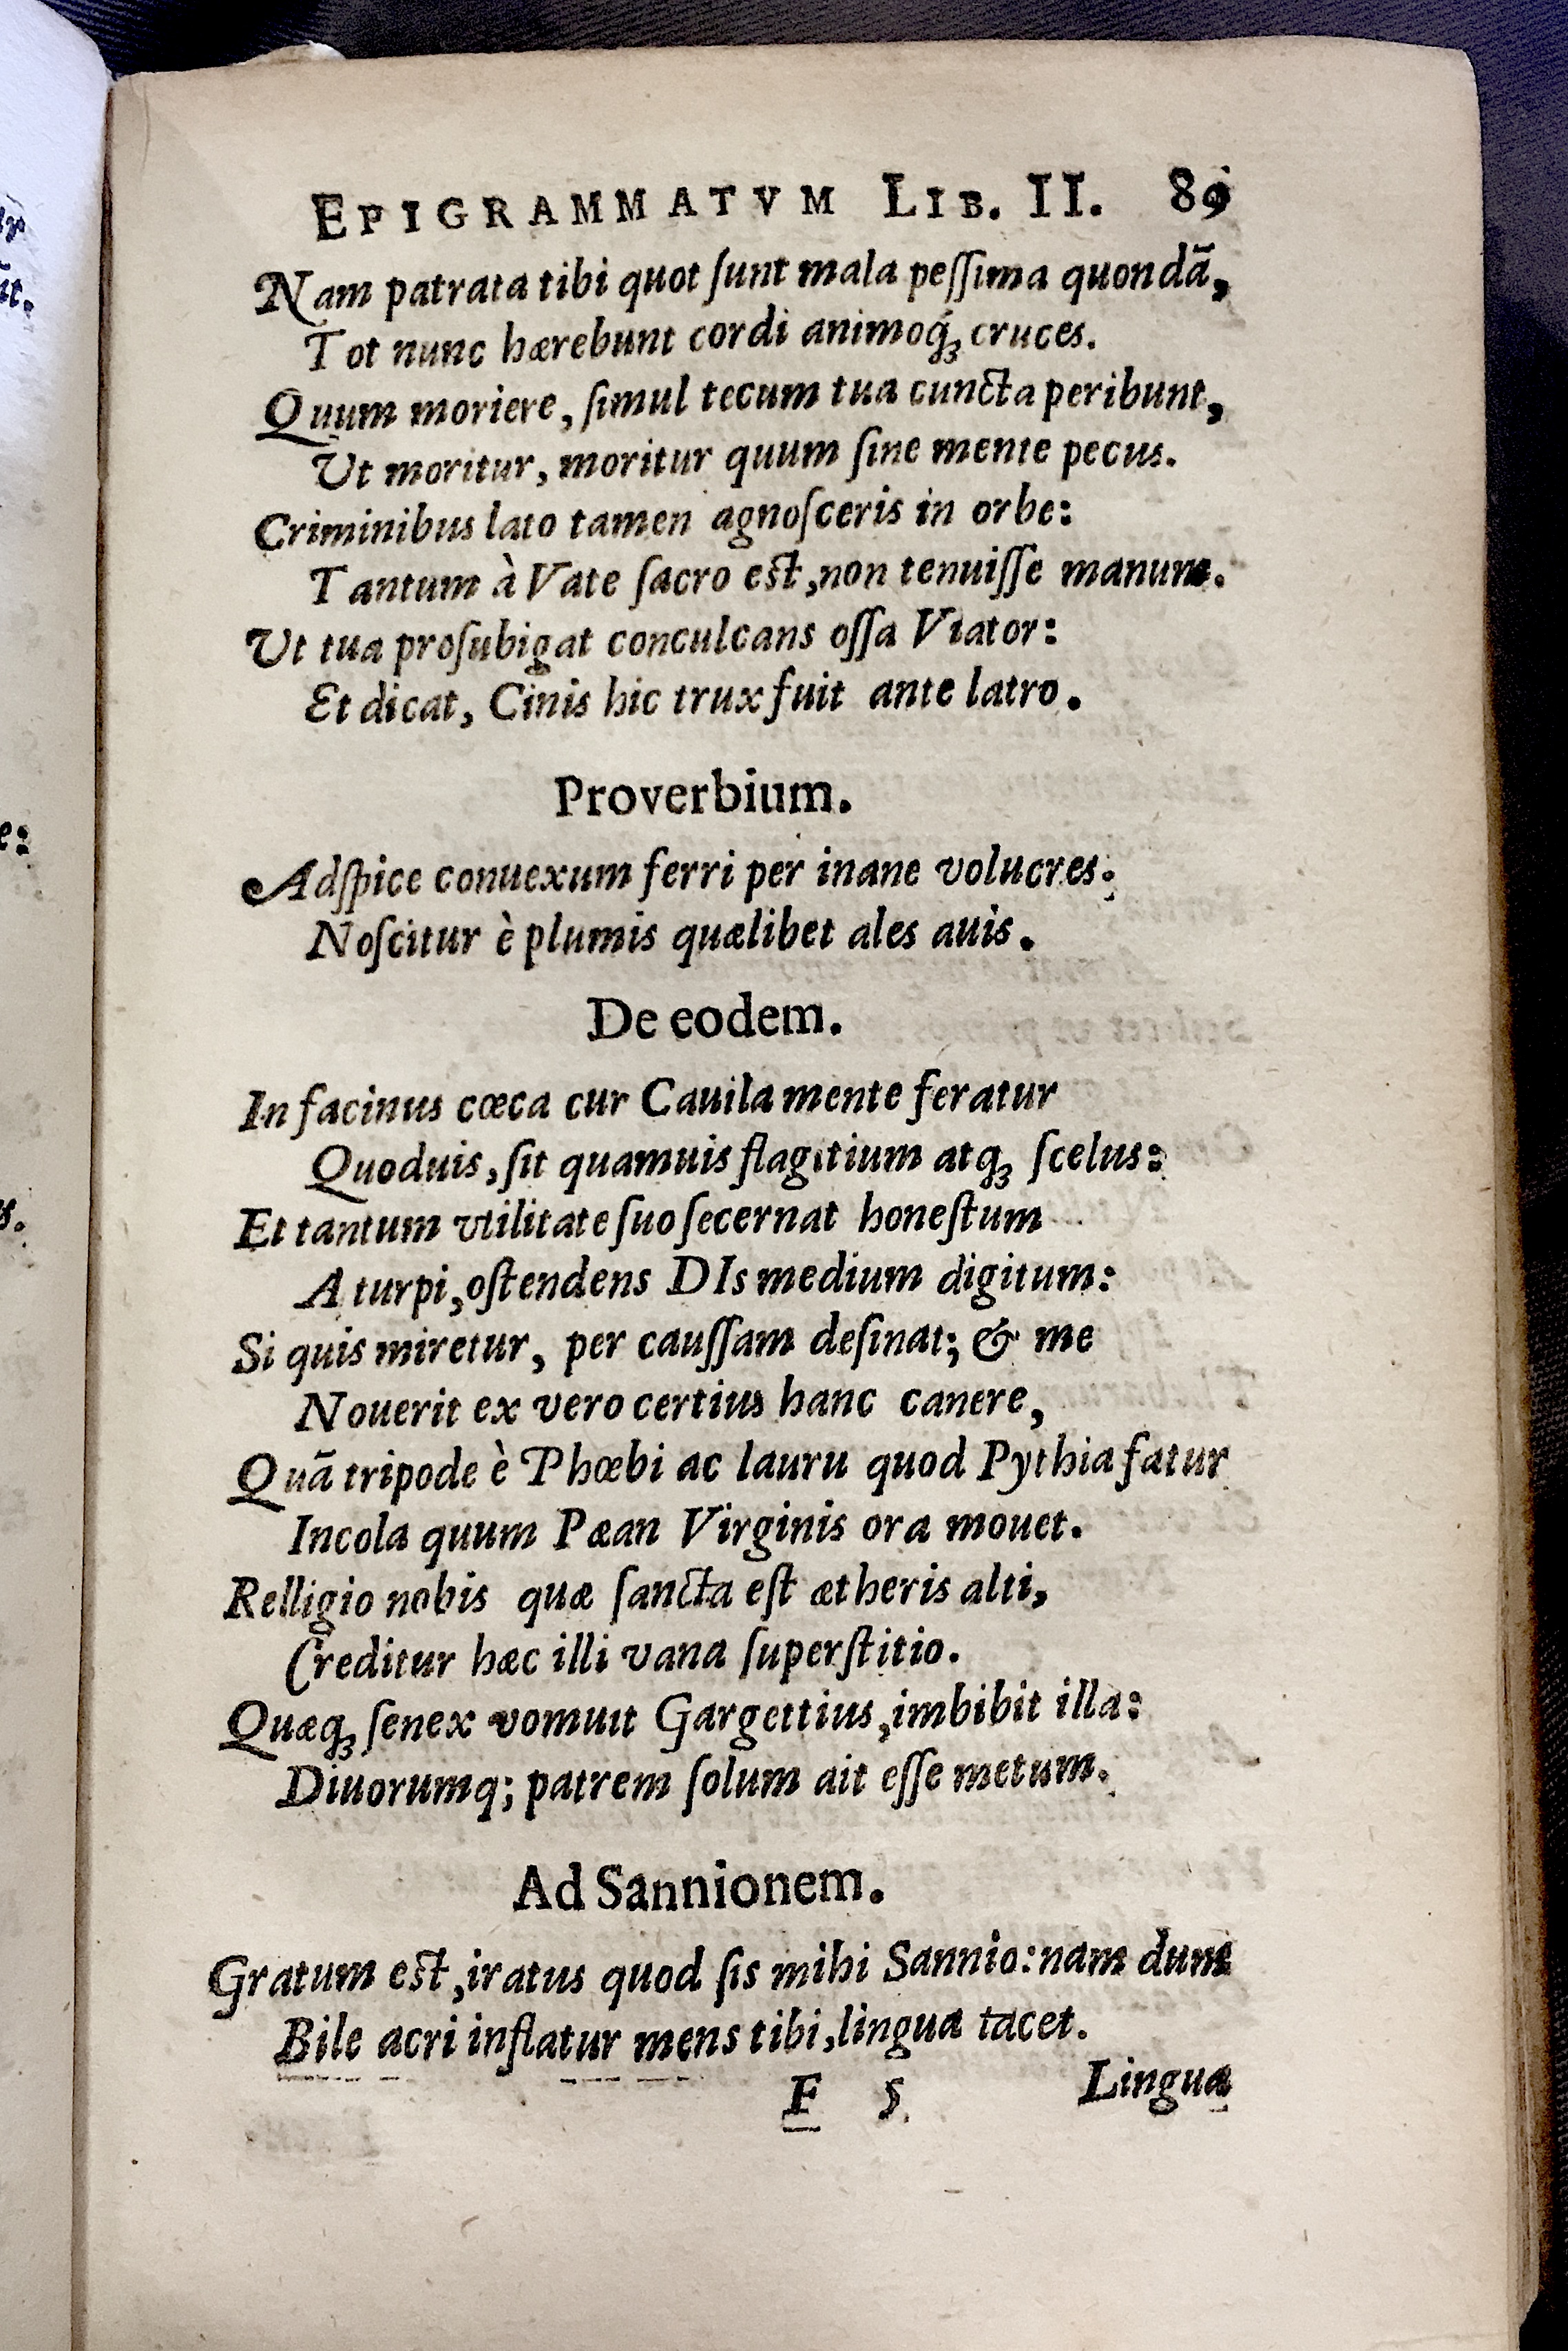 EPIGRAMMATVM LIB. II. 89
Nam patrata tibi quot ſunt mala peſſima quondā,
Tot nunc hærebunt cordi animoq́ꝫ cruces.
Quum moriere, ſimul tecum tua cuncta peribunt,
Ut moritur, moritur quum ſine mente pecus.
Criminibus lato tamen agnoſceris in orbe:
Tantum à Vate ſacro est, non tenuiſſe manum.
Ut tua proſubigat conculcans oſſa Viator:
Et dicat, Cinis hic trux fuit ante latro.
Proverbium.
Adſpice conuexum ferri per inane volucres:
Noſcitur è plumis quælibet ales auis.
De eodem.
In facinus cœca cur Cauila mente feratur
Quoduis, ſit quamuis flagitium atqꝫ ſcelus:
Et tantum vtilitate ſuo ſecernat honeſtum
A turpi, oſtendens DIs medium digitum:
Si quis miretur, per cauſſam deſinat; & me
Nouerit ex vero certius hanc canere,
Quā tripode è Phœbi ac lauru quod Pythia fatur
Incola quum Pæan Virginis ora mouet.
Relligio nobis quæ ſancta eſt ætheris alti,
Creditur hæc illi vana ſuperſtitio.
Quæqꝫ ſenex vomuit Gargettius, imbibit illa:
Diuorumq; patrem ſolum ait eſſe metum.
Ad Sannionem.
Gratum est, iratus quod ſis mihi Sannio: nam dum
Bile acri inflatur mens tibi, lingua tacet.
F 5 Lingua